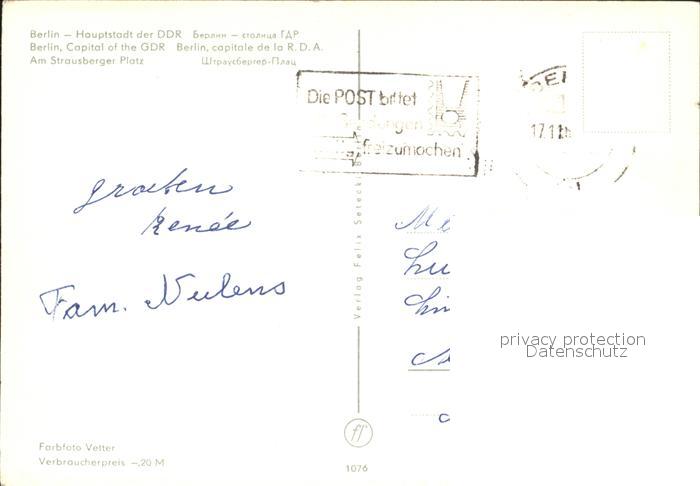 Berlin – Hauptstadt der DDR   Берлин – столица ГДР
Berlin, Capital of the GDR   Berlin, capitale de la R.D.A.
Am Strausberger Platz   Штраусбергер-Плац
Die POST bittet
Sendungen
freizumachen
17.11
groeten
Renée
Fam. Nulens
Verlag Felix Setecki Berlin
privacy protection
Datenschutz
Farbfoto Vetter
Verbraucherpreis –,20 M
1076